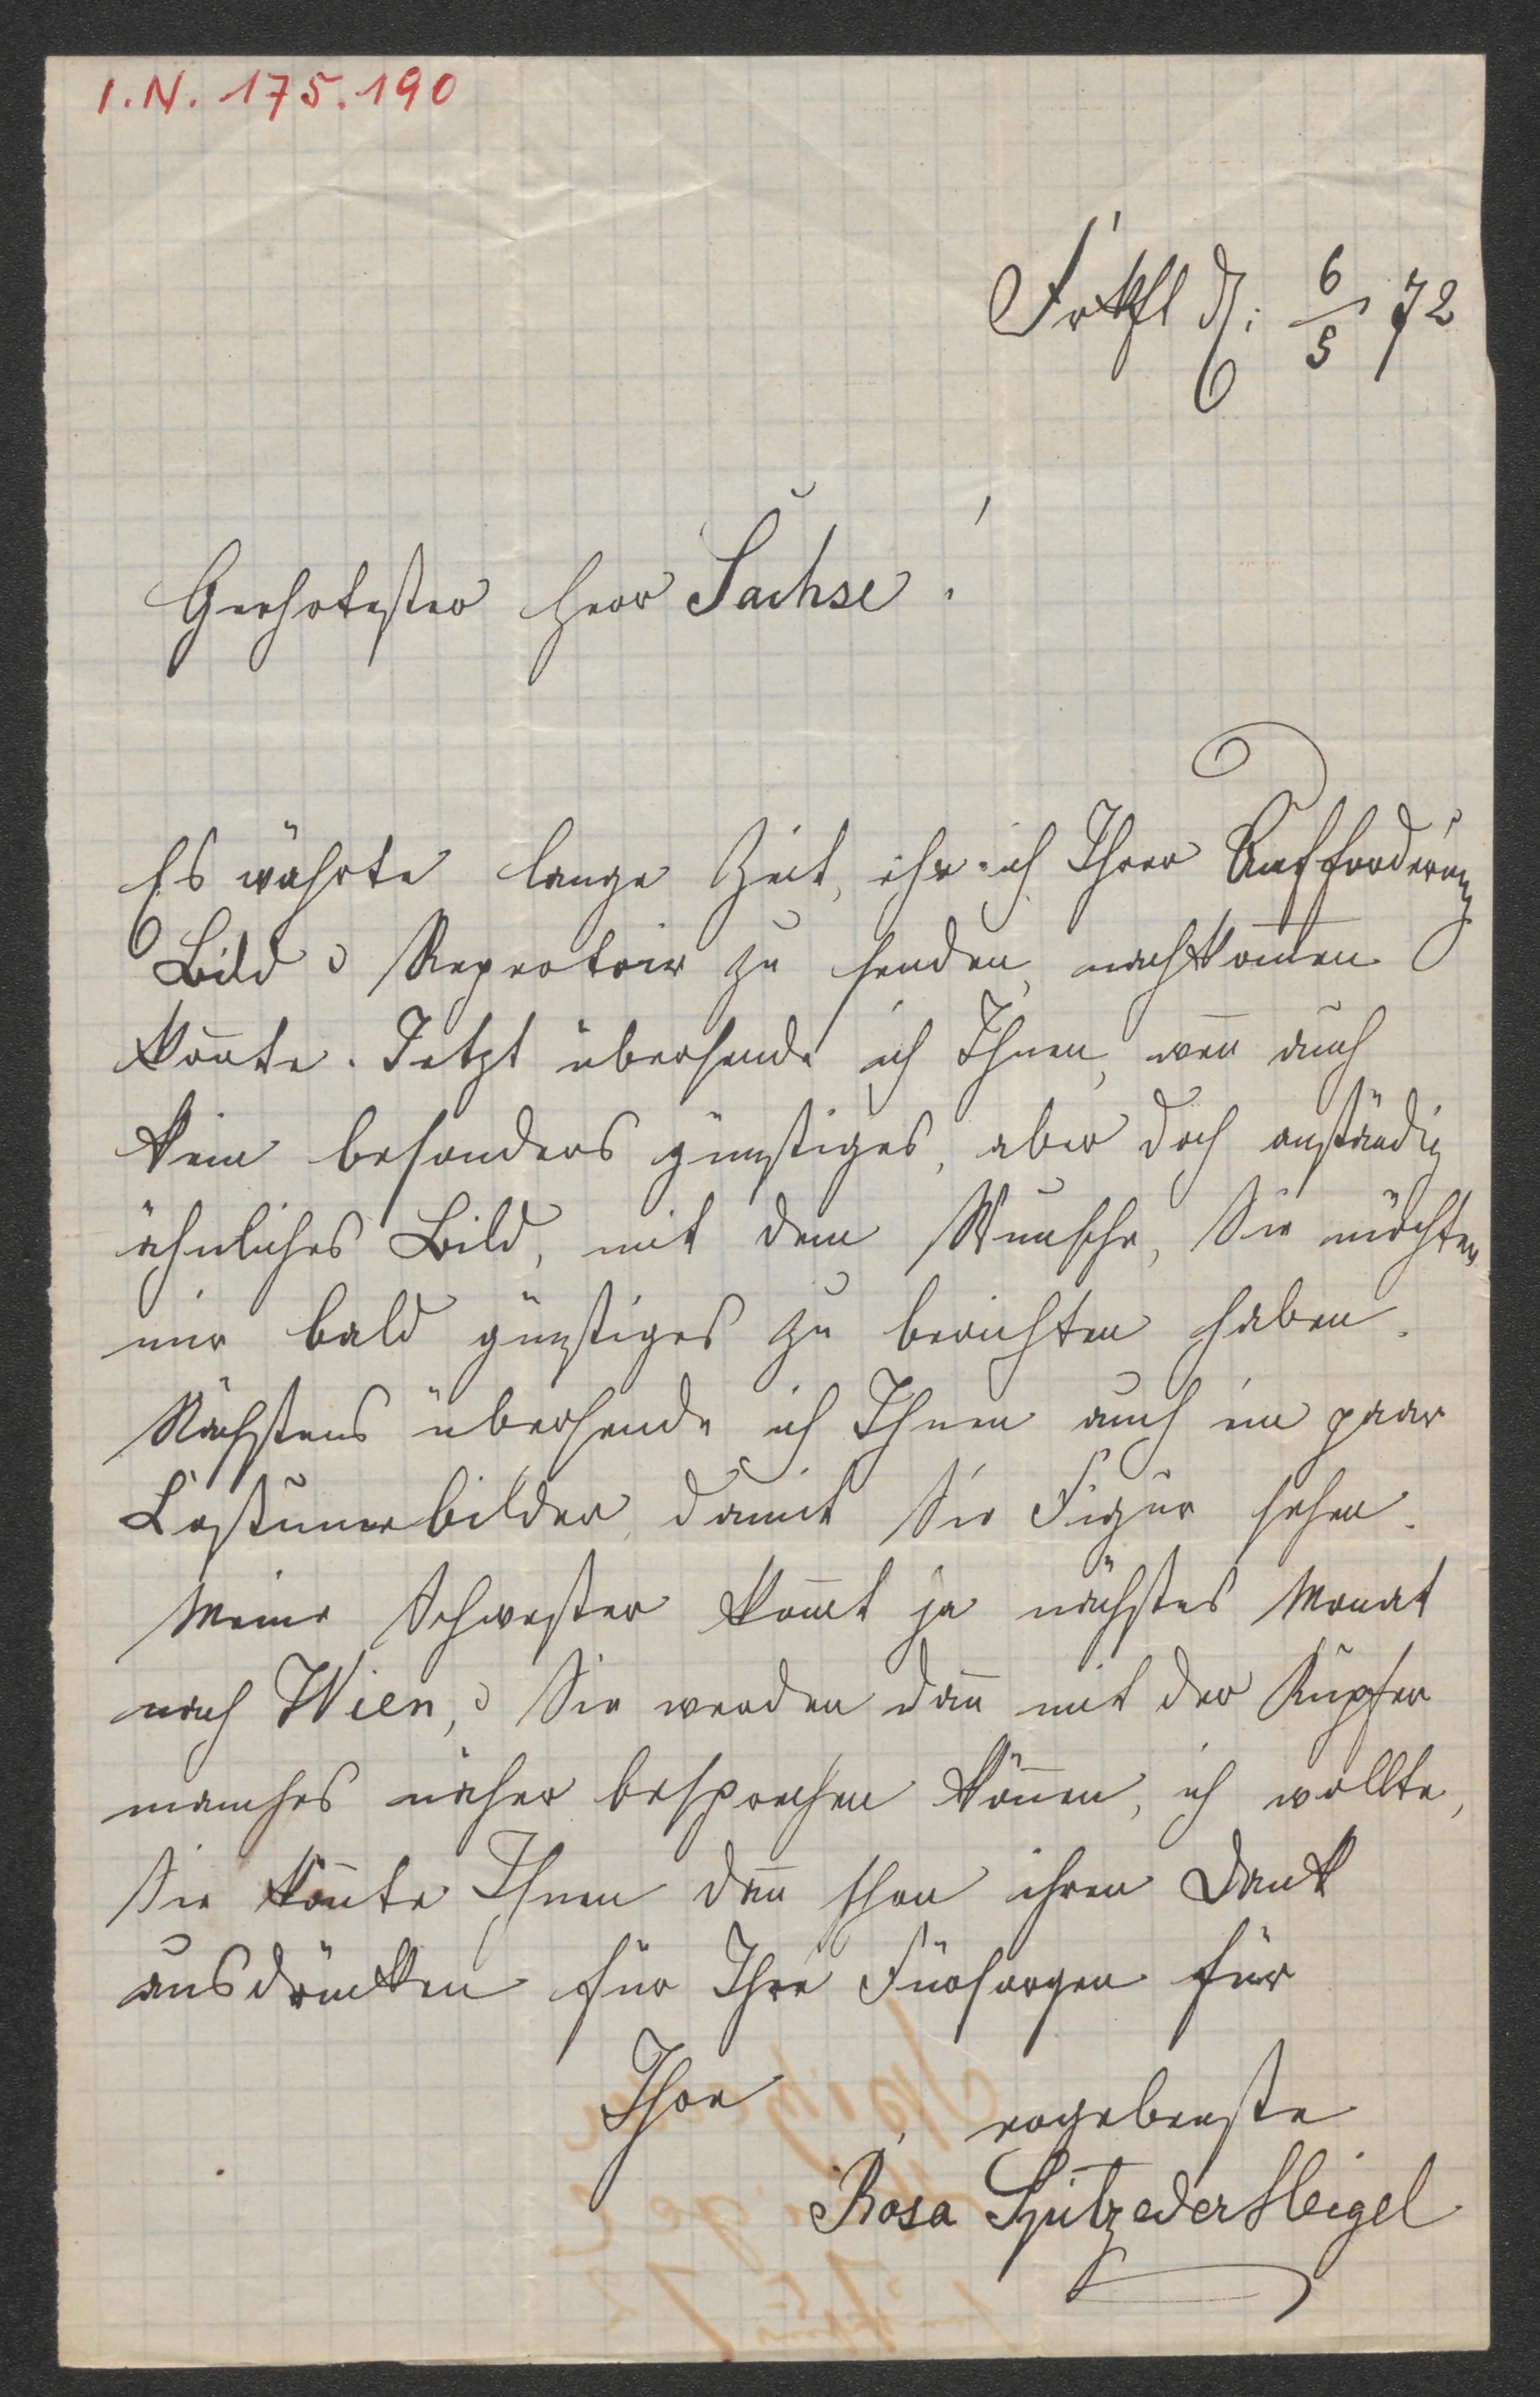 I.N. 175.190
Frkft d. 6/5 72
Geehrtester Herr Sachse!
Es währte lange Zeit, ehe ich Ihrer Aufforderung
Bild u Repertoir zu senden, nachkom̄en
kon̄te. Jetzt übersende ich Ihnen, wen̄ auch
kein besonders günstiges, aber doch anständig
ähnliches Bild, mit dem Wunsche, Sie möchten
mir bald günstiges zu berichten haben.
Nächstens übersende ich Ihnen auch ein paar
Costümebilder, damit Sie Figur sehen.
Meine Schwester kom̄t ja nächstes Monat
nach Wien, u Sie werden dan̄ mit der Küpfer
manches näher besprechen kön̄en, ich wollte,
Sie kön̄te Ihnen dan̄ schon ihren Dank
ausdrücken für Ihre Fürsorgen für
Ihre
ergebenste
Rosa Spitzeder Heigel